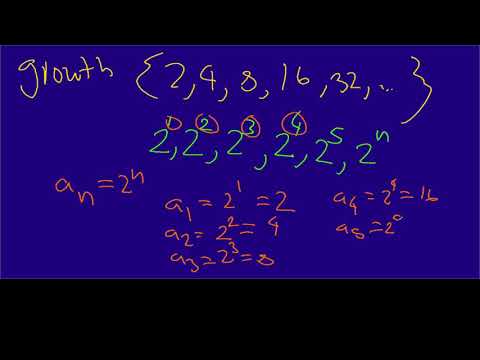 growth {2, 4, 8, 16, 32, ...}
2¹, 2², 2³, 2⁴, 2⁵, 2ⁿ
aₙ = 2ⁿ
a₁ = 2¹ = 2
a₂ = 2² = 4
a₃ = 2³ = 8
a₄ = 2⁴ = 16
a₅ = 2⁰